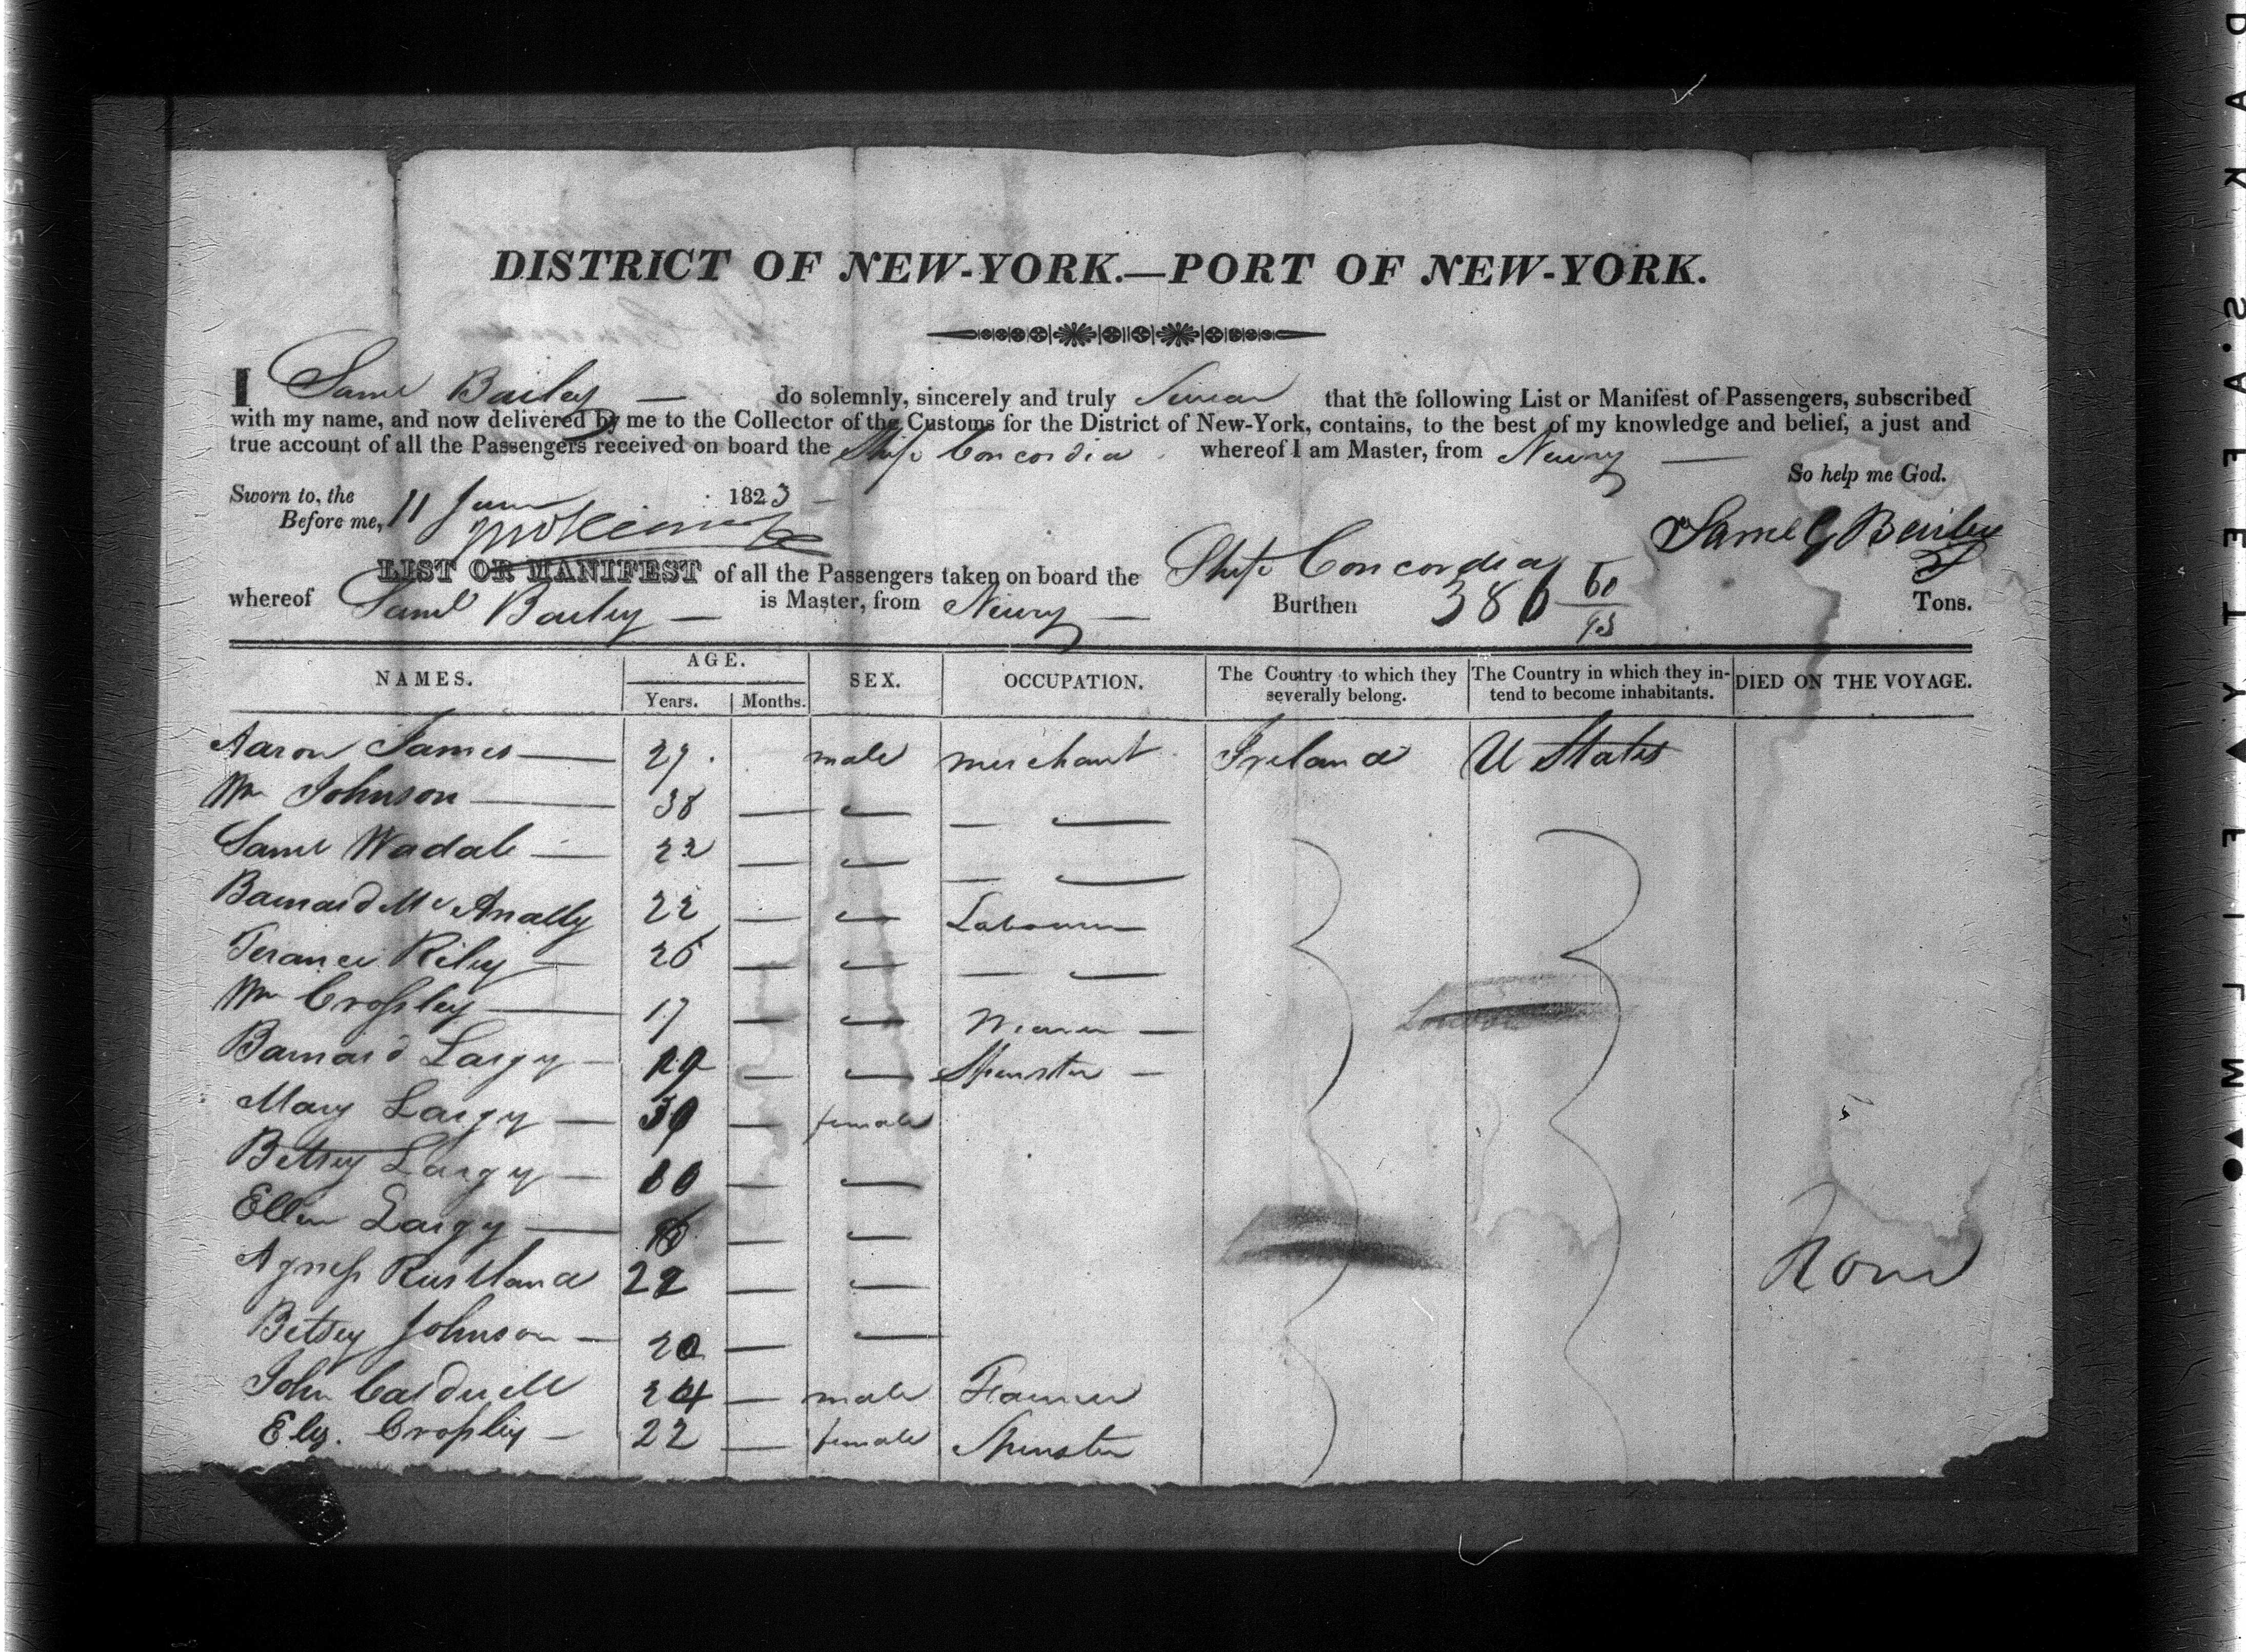 DISTRICT OF NEW-YORK.—PORT OF NEW-YORK.
I Saml Bailey — do solemnly, sincerely and truly Swear that the following List or Manifest of Passengers, subscribed
with my name, and now delivered by me to the Collector of the Customs for the District of New-York, contains, to the best of my knowledge and belief, a just and
true account of all the Passengers received on board the Ship Concordia whereof I am Master, from Newry —
So help me God.
Sworn to, the 11 June 1823 —
Before me,
Saml G Bailey
LIST OR MANIFEST of all the Passengers taken on board the Ship Concordia
whereof Saml Bailey — is Master, from Newry — Burthen 386 60/95 Tons.
NAMES. AGE. SEX. OCCUPATION. The Country to which they severally belong. The Country in which they intend to become inhabitants. DIED ON THE VOYAGE.
Years. Months.
Aaron James — 27 male merchant Ireland U States
Wm Johnson — 38 — — — —
Saml Wadale — 22 — — — —
Barnard Mc Anally 22 — — Labourer
Terance Riley — 26 — — — —
Wm Cropley — 17 — — Weaver —
Barnard Largy — 19 — — Spinster —
Mary Largy — 39 — female
Betsey Largy — 10 — —
Ellen Largy — — —
Agness 22 — —
None
Betsey Johnson — 20 — —
John Caldwell 24 — male Farmer
Elz. Cropley — 22 — female Spinster